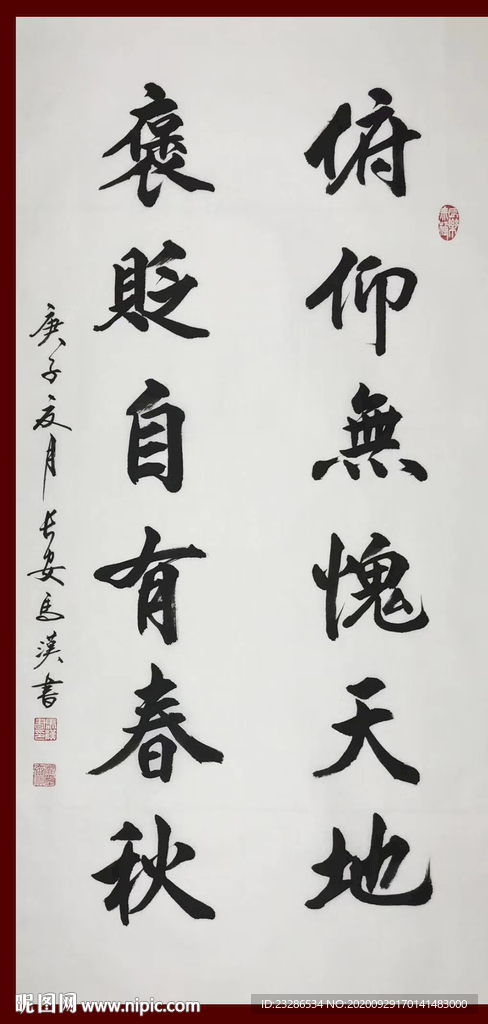 俯仰無愧天地
褒貶自有春秋
庚子夏月长安馬漢書
昵图网 www.nipic.com
ID:23286534 NO.20200929170141483000